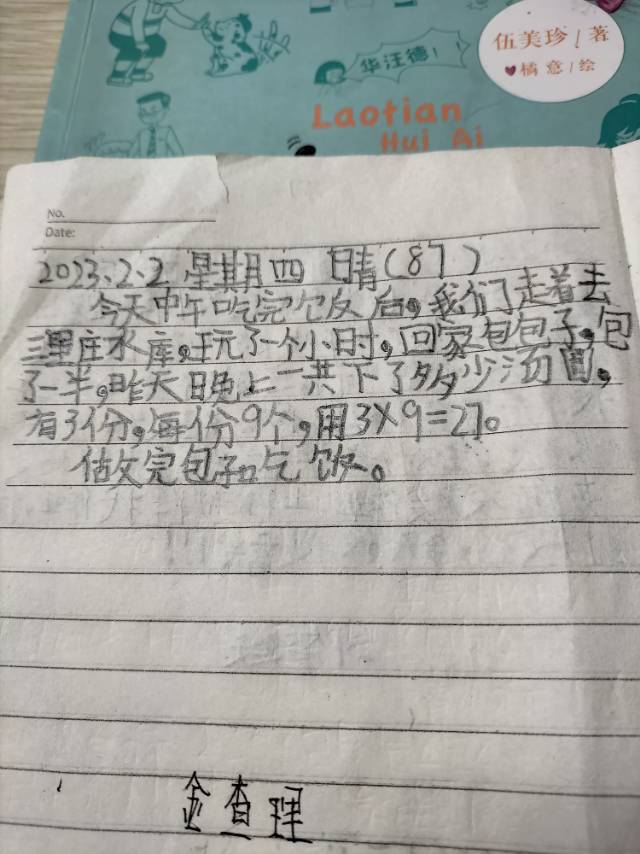 伍美珍/著
♥橘意/绘
华汪德！
Laotian
Hui Ai
No.
Date:
2023.2.2 星期四 晴(87)
今天中午吃完饭后,我们走着去
三里庄水库,玩了一个小时,回家包包子,包
了一半,昨天晚上一共下了多少汤圆,
有3份,每份9个,用3×9=27。
做完包子吃饭。
金查理